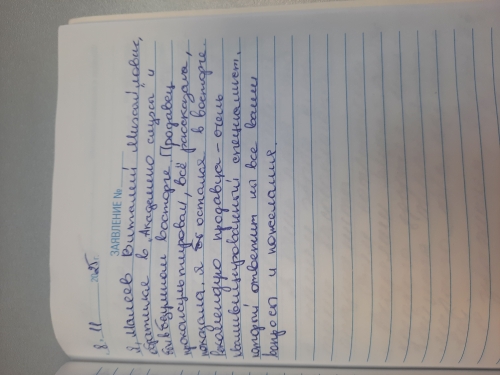 8. 11 2025 г.
ЗАЯВЛЕНИЕ №
Я, Малеев Виталий Михайлович,
обратился в "Академию слуха" и
был в безумном восторге. Продавец
проконсультировал, всё рассказала,
показала. Я остался в восторге.
Рекомендую продавца - очень
квалифицированный специалист,
который ответит на все ваши
вопросы и пожелания.